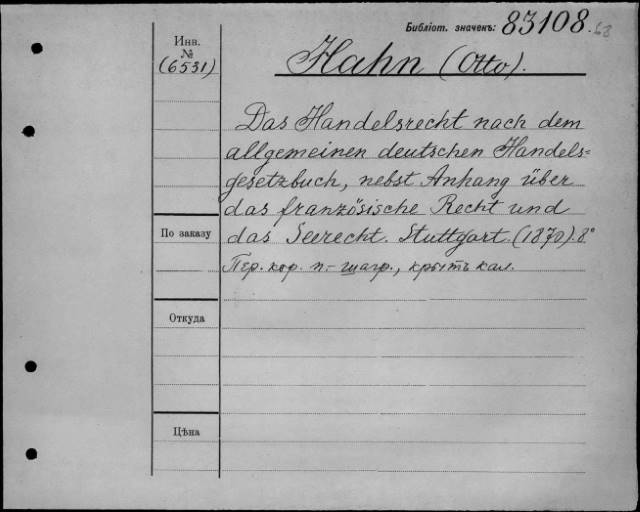 Библіот. значекъ: 83108.
Инв.
№
(6531)
Hahn (Otto).
Das Handelsrecht nach dem
allgemeinen deutschen Handels=
gesetzbuch, nebst Anhang über
das französische Recht und
По заказу
das Seerecht. Stuttgart. (1870). 8°
Пер. кор. п.-шагр., крытъ кал.
Откуда
Цѣна